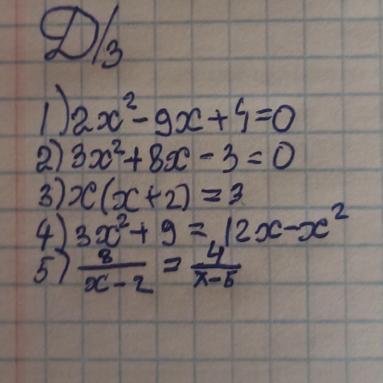 Д/з
1) 2x² - 9x + 4 = 0
2) 3x² + 8x - 3 = 0
3) x(x+2) = 3
4) 3x² + 9 = 12x - x²
5) 8/(x-2) = 4/(x-5)